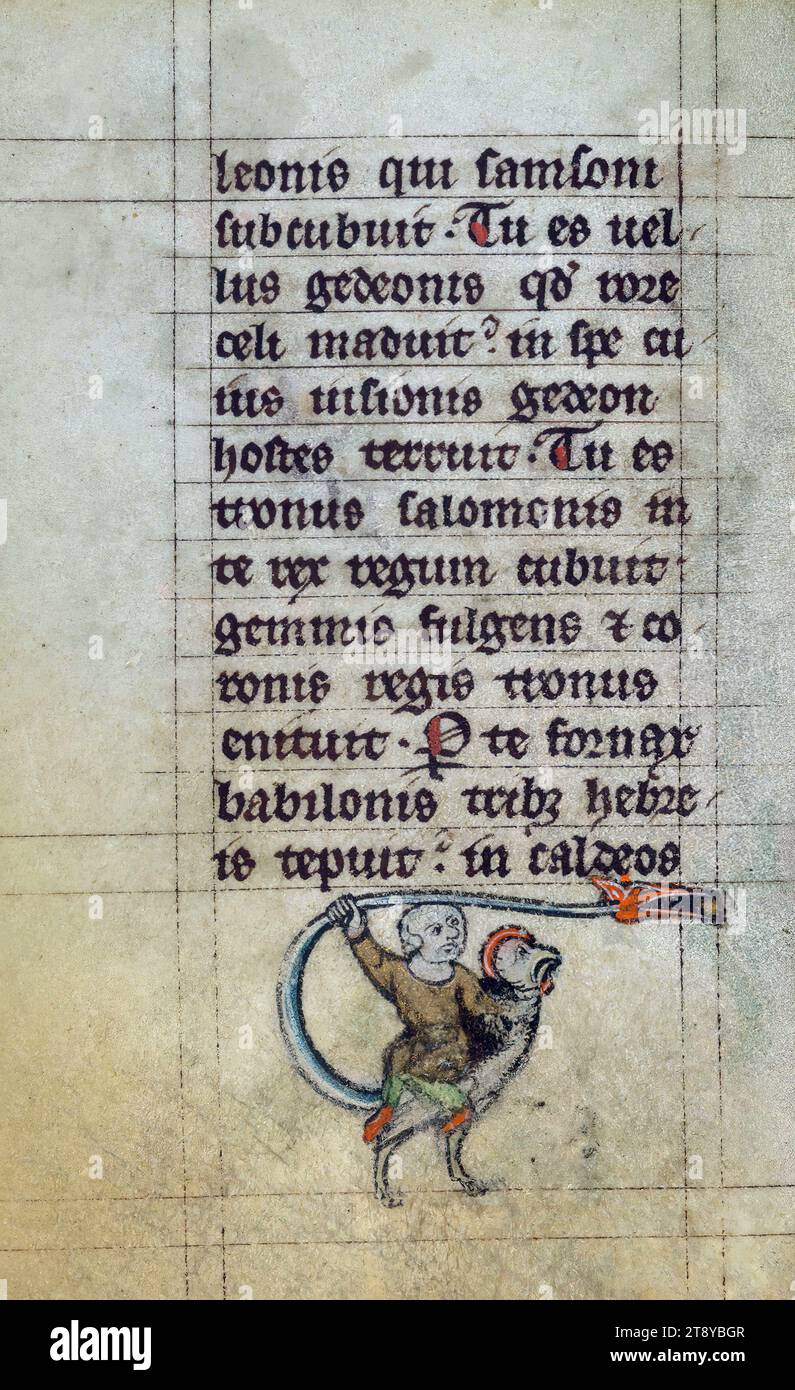 leonis qui samsoni
subcubuit. Tu es uel
lus gedeonis qd rore
celi maduit. in spe cu
ius uisionis gedeon
hostes terruit. Tu es
tronus salomonis in
te rex regum cubuit
gemmis fulgens & co
ronis regis tronus
enituit. P te fornax
babilonis trib; hebre
is tepuit. in caldeos
alamy
Image ID: 2T8YBGR
www.alamy.com